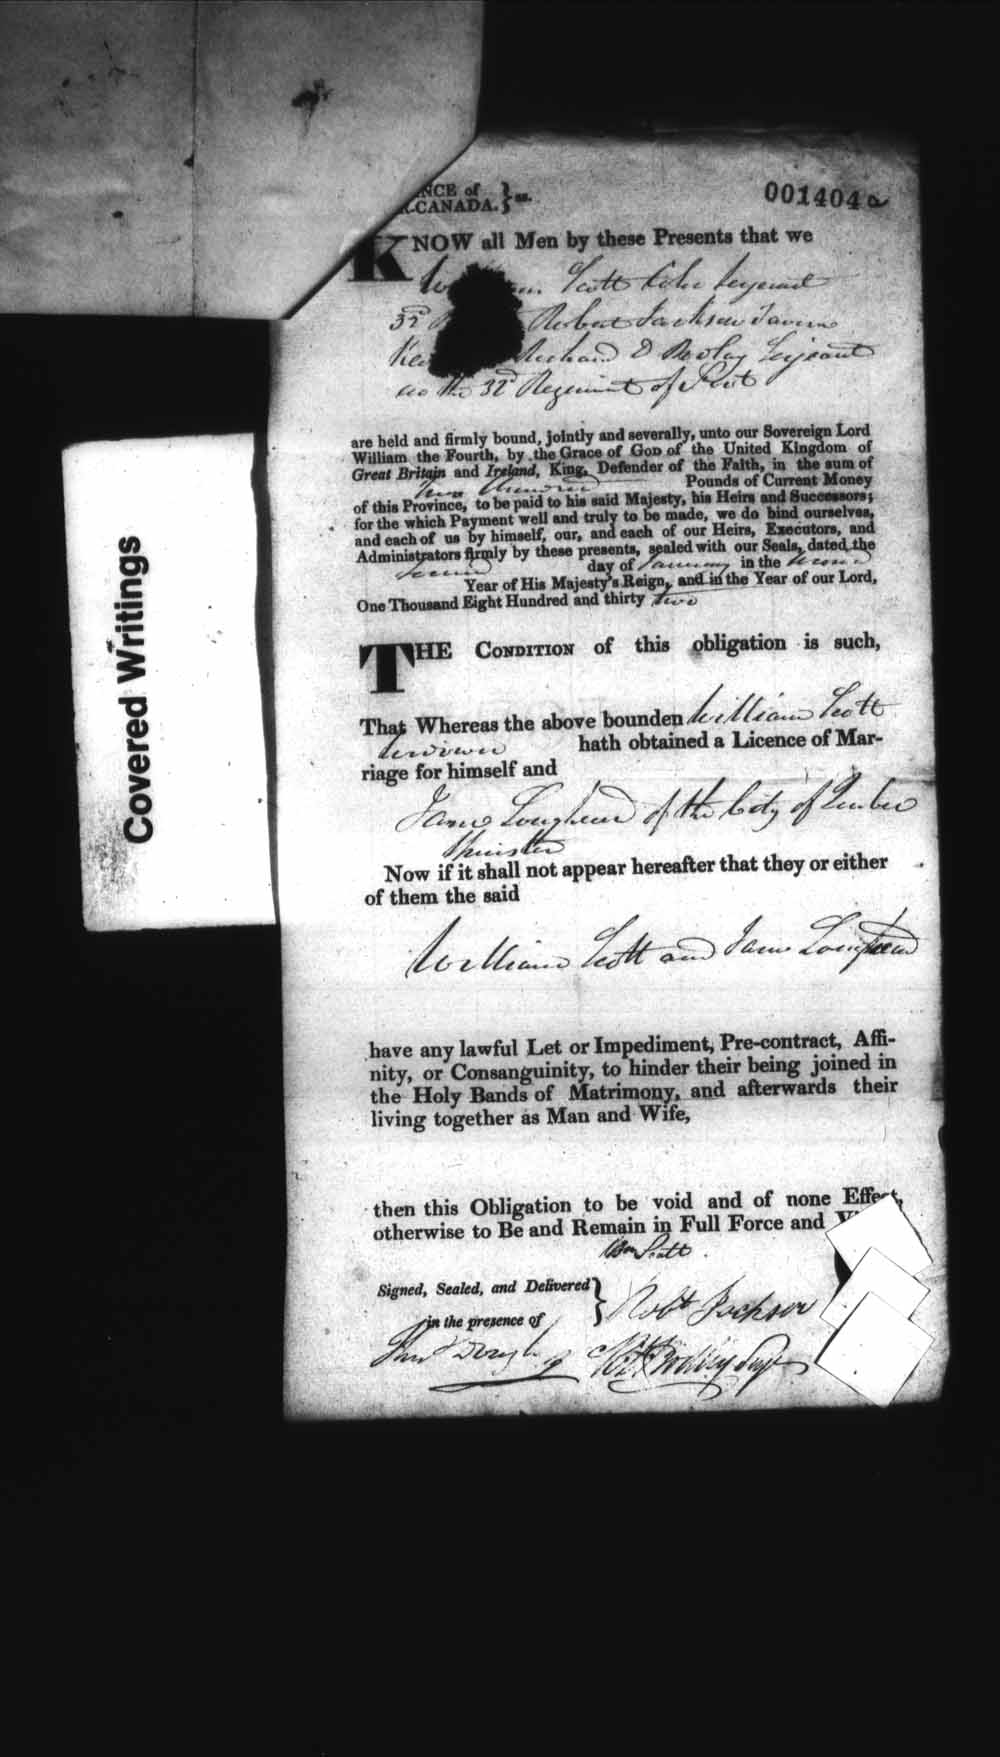 NCE of
-CANADA. } ss.
001404 a
KNOW all Men by these Presents that we
Scott Color Serjeant
32d Robert Jackson Tavern
Richard D
in the 32d Regiment of Foot
are held and firmly bound, jointly and severally, unto our Sovereign Lord
William the Fourth, by the Grace of GOD of the United Kingdom of
Great Britain and Ireland, King, Defender of the Faith, in the sum of
two hundred Pounds of Current Money
of this Province, to be paid to his said Majesty, his Heirs and Successors;
for the which Payment well and truly to be made, we do bind ourselves,
and each of us by himself, our, and each of our Heirs, Executors, and
Administrators firmly by these presents, sealed with our Seals, dated the
day of January in the second
Year of His Majesty's Reign, and in the Year of our Lord,
One Thousand Eight Hundred and thirty two
THE CONDITION of this obligation is such,
That Whereas the above bounden William Scott
hath obtained a Licence of Mar-
riage for himself and
Jane Loughead of the City of Quebec
Spinster
Now if it shall not appear hereafter that they or either
of them the said
William Scott and Jane Loughead
have any lawful Let or Impediment, Pre-contract, Affi-
nity, or Consanguinity, to hinder their being joined in
the Holy Bands of Matrimony, and afterwards their
living together as Man and Wife,
then this Obligation to be void and of none Effect,
otherwise to Be and Remain in Full Force and
Wm Scott.
Signed, Sealed, and Delivered }
Robt Jackson
in the presence of
Covered Writings